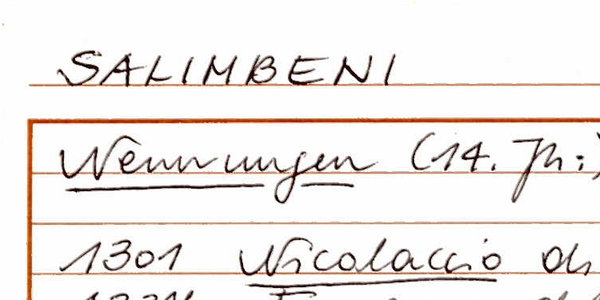 SALIMBENI
Nennungen (14. Jh.)
1301 Nicolaccio di